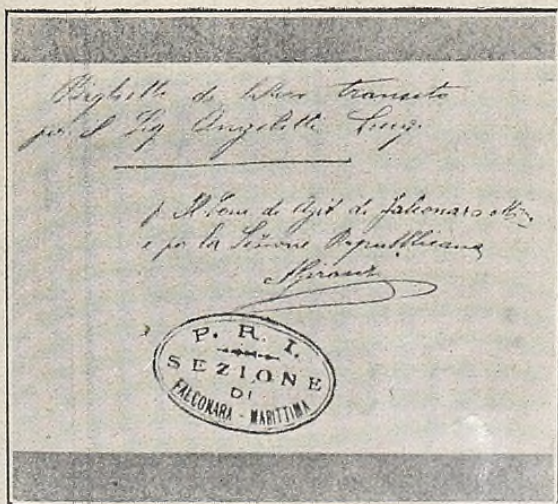 Biglietto di libero transito
per il Sig Angeletti Luigi
p. Il Com di Agit di Falconara Mma
e per la Sezione Repubblicana
P. R. I.
SEZIONE
DI
FALCONARA - MARITTIMA